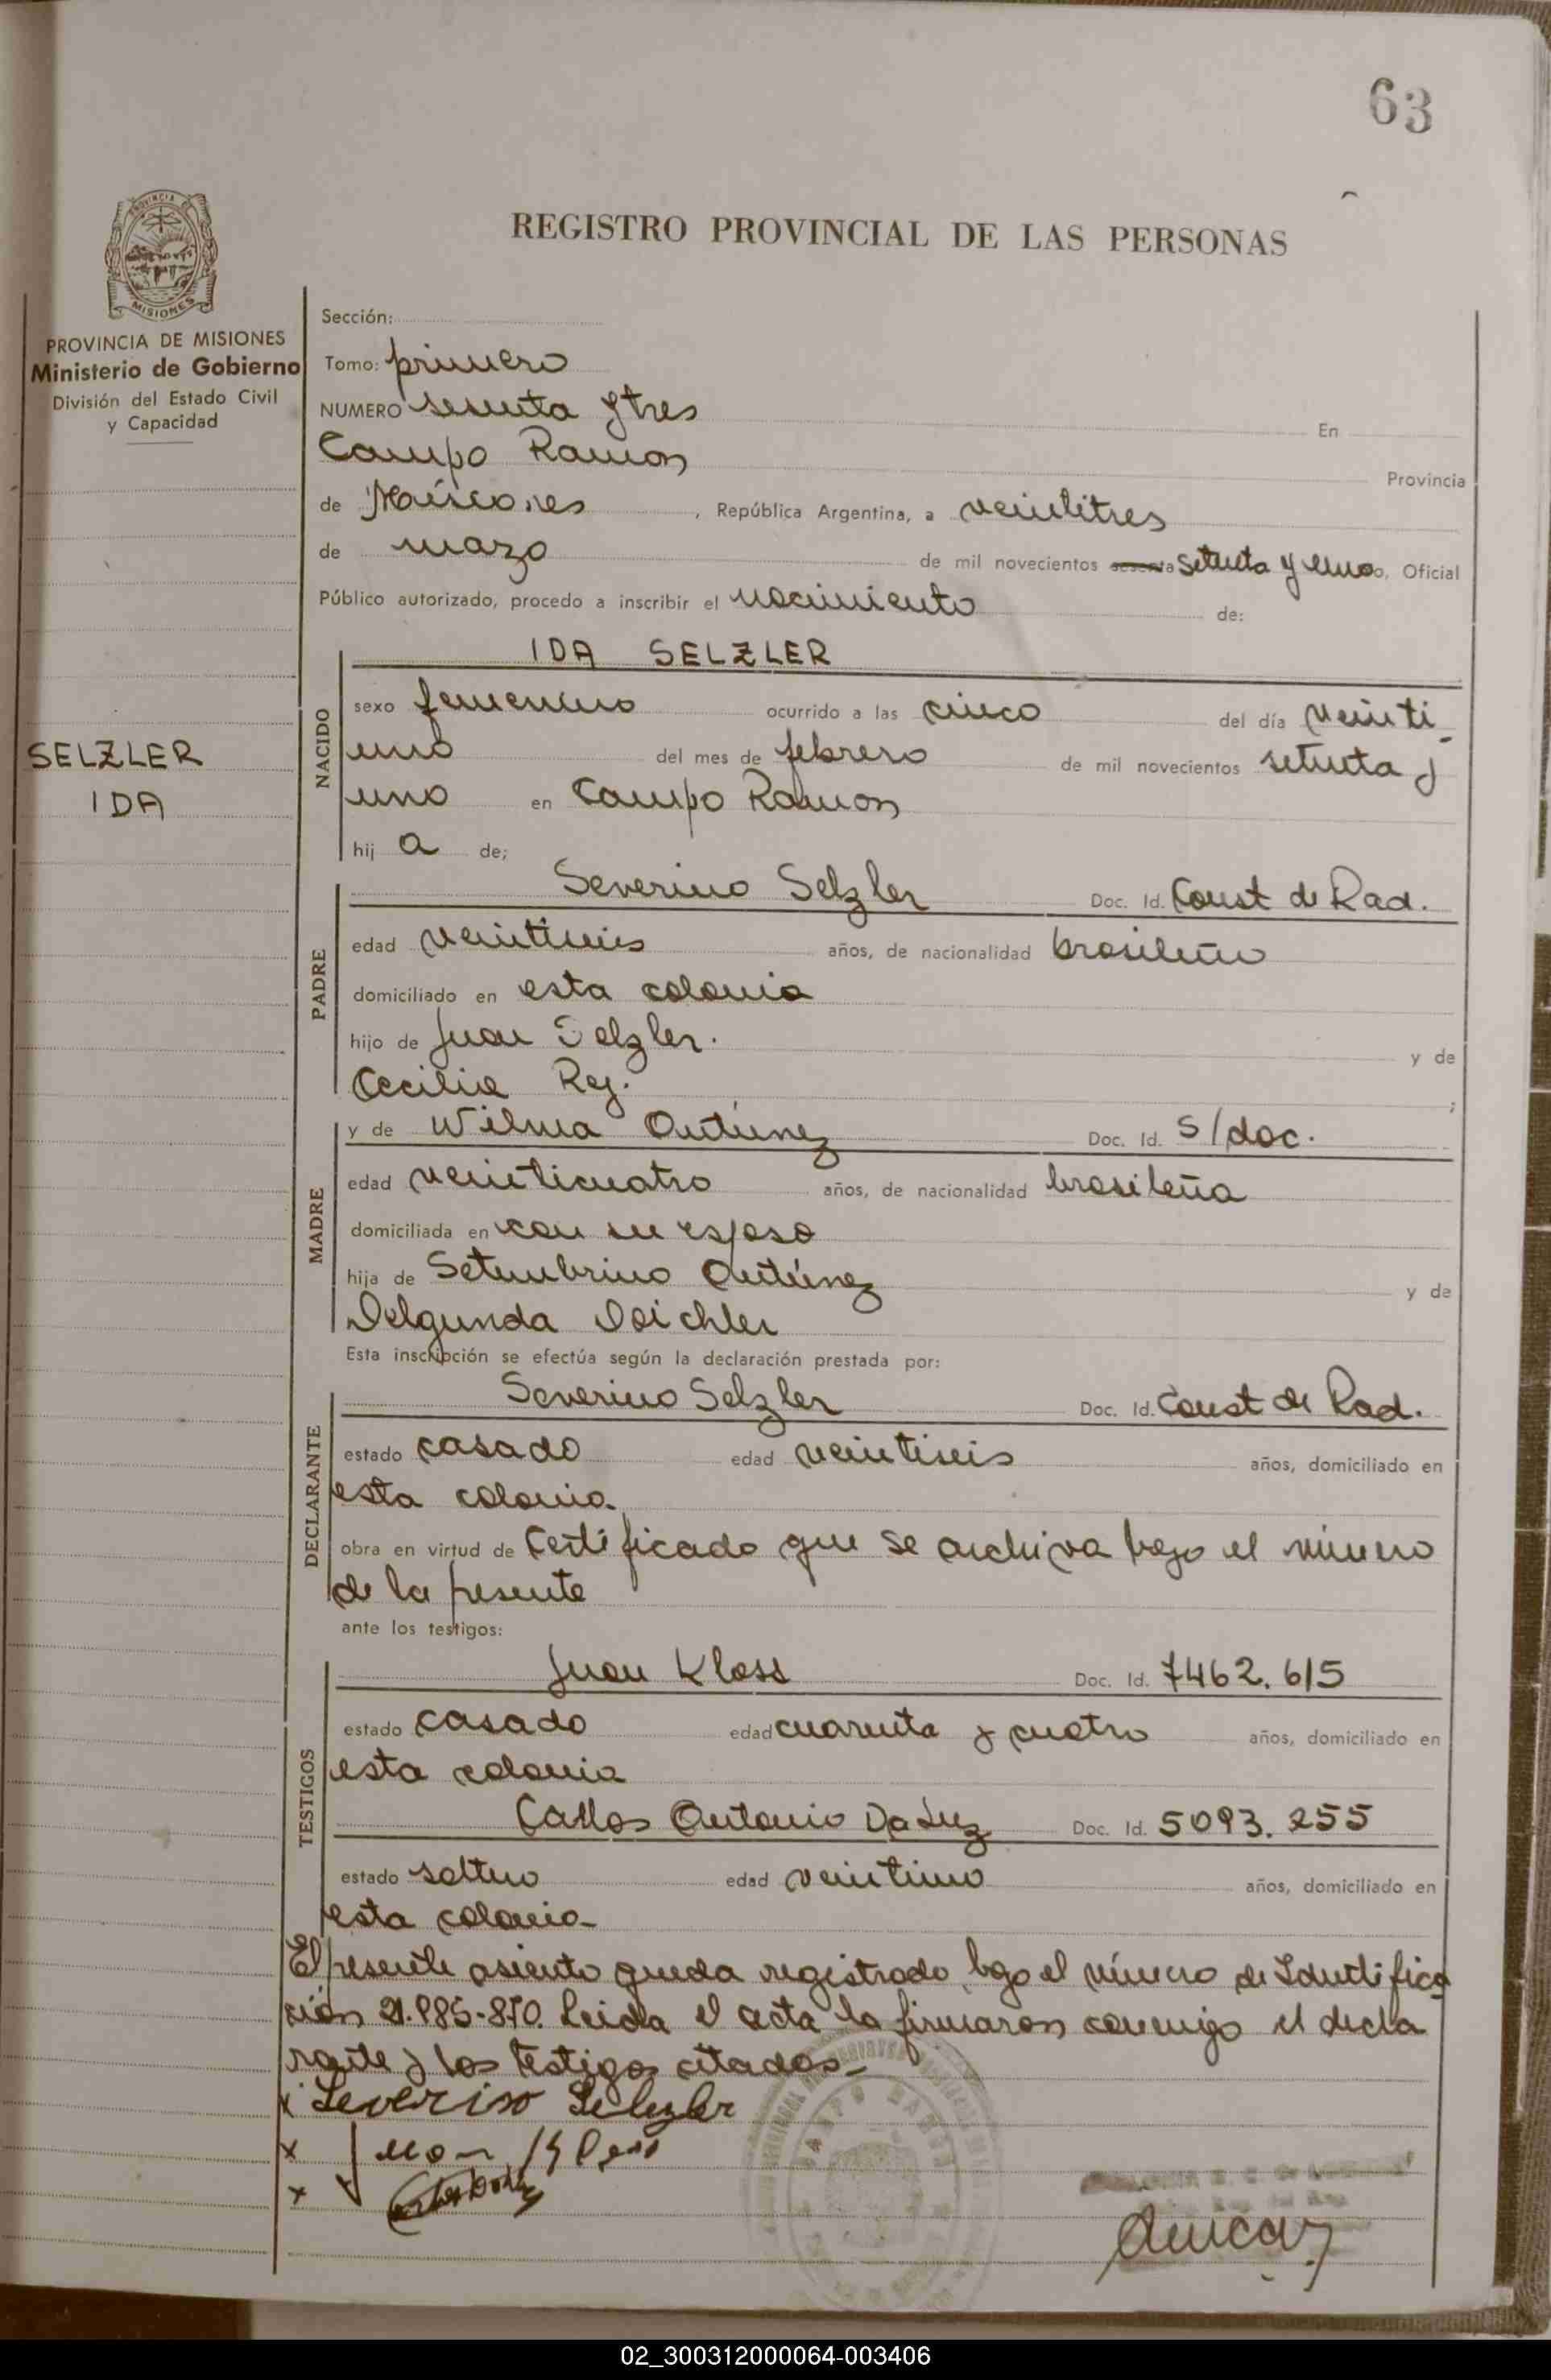 63
REGISTRO PROVINCIAL DE LAS PERSONAS
PROVINCIA DE MISIONES
Ministerio de Gobierno
División del Estado Civil
y Capacidad
SELZLER
IDA
Sección:
Tomo: primero
NUMERO sesenta y tres En
Campo Ramon Provincia
de Misiones, República Argentina, a veintitres
de mazo de mil novecientos sesenta setenta y uno, Oficial
Público autorizado, procedo a inscribir el nacimiento de:
IDA SELZLER
NACIDO
sexo femenino ocurrido a las cinco del día veinti
uno del mes de febrero de mil novecientos setenta y
uno en Campo Ramon
hij a de;
PADRE
Severino Selzler Doc. Id. Const de Rad.
edad veintiseis años, de nacionalidad brasileño
domiciliado en esta colonia
hijo de Juan Selzler. y de
Cecilia Rej. ;
MADRE
y de Wilma Antúnez Doc. Id. S/doc.
edad veinticuatro años, de nacionalidad brasileña
domiciliada en con su esposo
hija de Setembrino Antúnez y de
Delgunda Deichler
Esta inscripción se efectúa según la declaración prestada por:
DECLARANTE
Severino Selzler Doc. Id. Const de Rad.
estado casado edad veintiseis años, domiciliado en
esta colonia
obra en virtud de Certificado que se archiva bajo el número
de la presente
ante los testigos:
TESTIGOS
Juan Kloss Doc. Id. 7462.615
estado casado edad cuarenta y cuatro años, domiciliado en
esta colonia
Carlos Antonio Da Luz Doc. Id. 5093.255
estado soltero edad veintiuno años, domiciliado en
esta colonia
El presente asiento queda registrado bajo el número de Identifica
ción 21.885-870. Leida el acta la firmaron conmigo el decla
rante y los testigos citados.
x Severino Selezler
x Juan Kloss
x
02_300312000064-003406